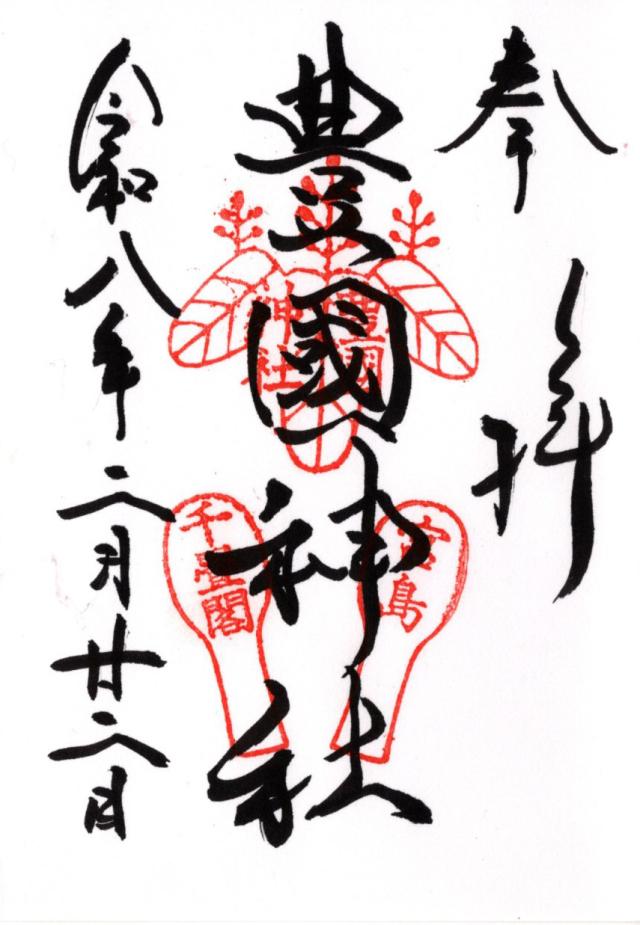 奉拝
豊國神社
豊國
神社
宮島
千畳閣
令和八年二月廿二日